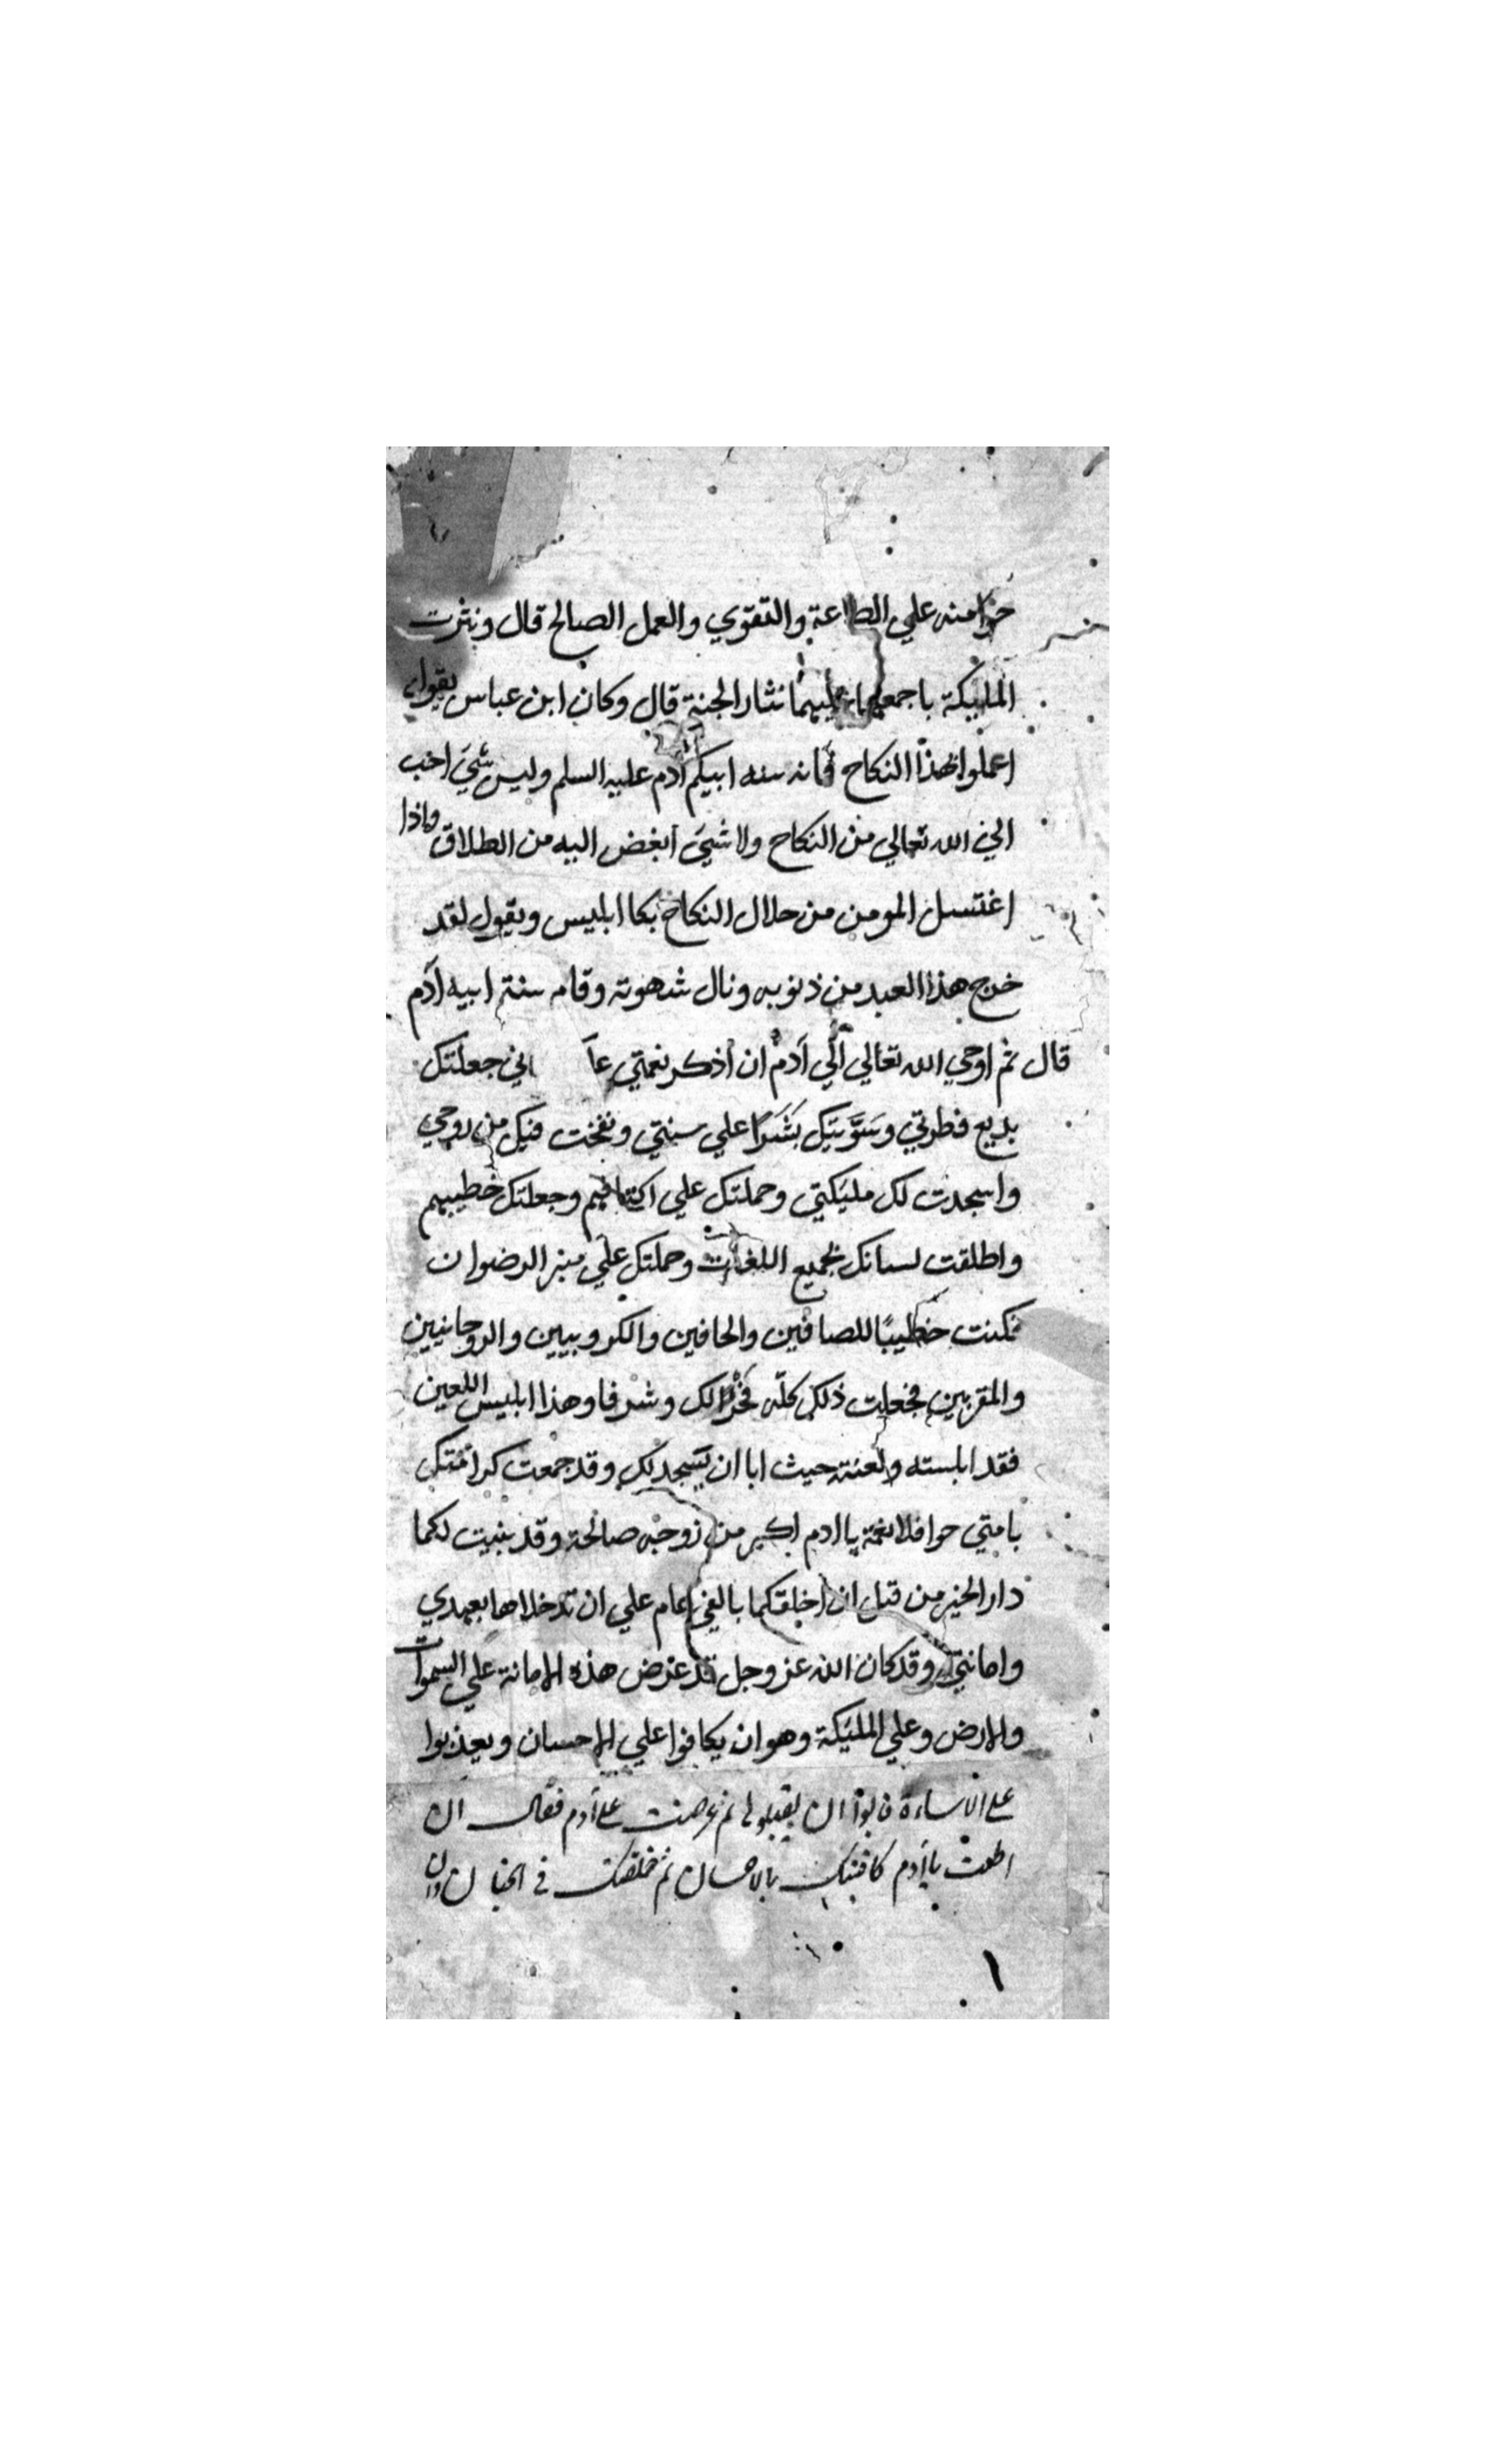 حوا منه علي الطاعة والتقوي والعمل الصالح قال ونثرت
المليكة باجمعهما عليهما نثار الجنة قال وكان ابن عباس يقول
اعملوا لهذا النكاح فانه سنه ابيكم آدم عليه السلم وليس شيَ احب
الي الله تعالي من النكاح ولا شيَ ابغض اليه من الطلاق واذا
اغتسل المومن من حلال النكاح بكا ابليس ويقول لقد
خرج هذا العبد من ذنوبه ونال شهوته وقام سنة ابيه آدم
قال ثم اوحي الله تعالي الي آدم ان اذكر نعمتي عا اني جعلتك
بديع فطرتي وسَوَّيتك بَشَرًا علي سنتي ونفخت فيك من روحي
واسجدت لك مليَكتي وحملتك علي اكتافهم وجعلتك خطيبهم
واطلقت لسانك بجميع اللغات وحملتك علي منبر الرضوان
فكنت خطيبًا للصافين والحافين والكروبيين والروحانيين
والمقربين فجعلت ذلك كلّه فخرًا لك وشرفا وهذا ابليس اللعين
فقد ابلسته ولعنته حيث ابا ان يسجد لك وقد جمعت كرامتك
بامتي حوا فلا نعمة يا ادم اكبر من زوجه صالحة وقد بنيت لكما
دار الخير من قبل ان اخلقكما بالفي عام علي ان تدخلاها بعهدي
وامانتي وقد كان الله عز وجل قد عرض هذه الامانة علي السموات
والارض وعلي المليَكة وهو ان يكافوا علي الاحسان ويعذبوا
على الاساءة فابوا ان يقبلوها ثم عرضت على آدم فقال ان
اطعت يا آدم كافيتك بالاحسان ثم خلقتك في الجنان وان
١